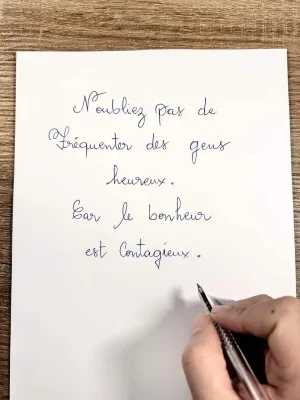 N'oubliez pas de
Fréquenter des gens
heureux.
Car le bonheur
est Contagieux.